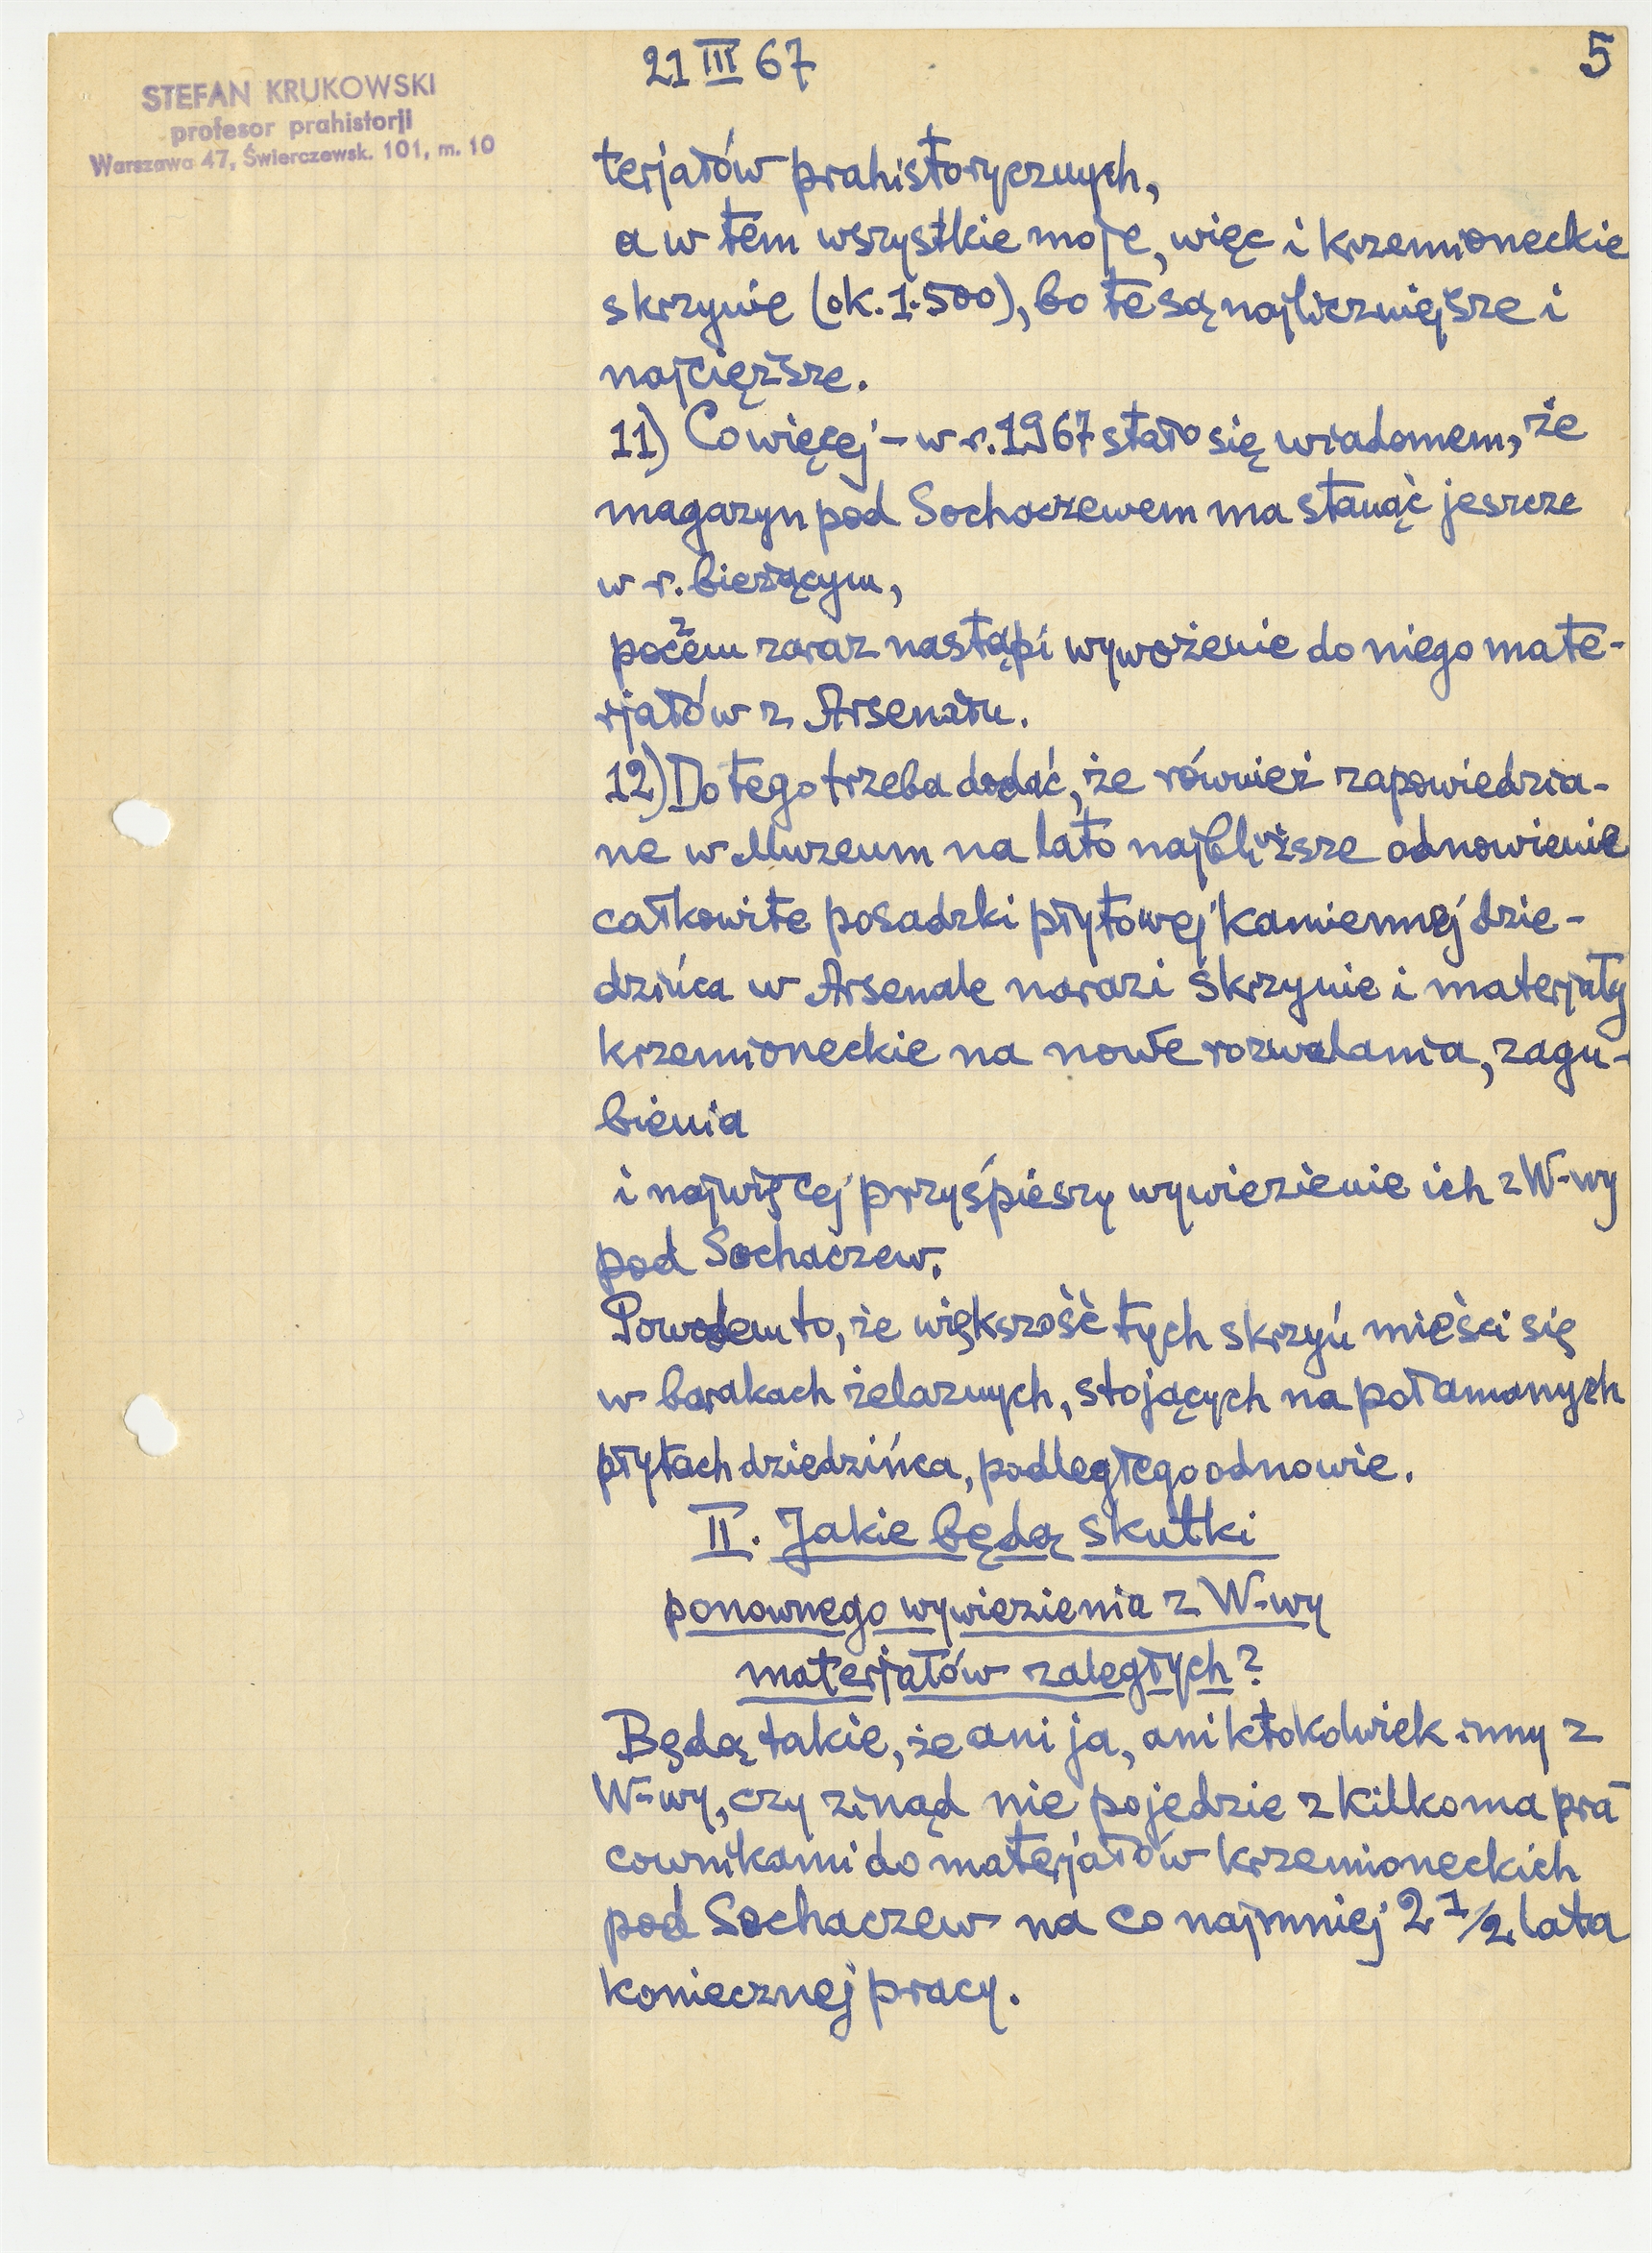 STEFAN KRUKOWSKI
profesor prahistorji
Warszawa 47, Świerczewsk. 101, m. 10
21 III 67
5
terjałów prahistorycznych,
a w tem wszystkie moje, więc i krzemioneckie
skrzynie (ok. 1.500), bo te są najliczniejsze i
najcięższe.
11) Co więcej – w r. 1967 stało się wiadomem, że
magazyn pod Sochaczewem ma stanąć jeszcze
w r. bieżącym,
poczem zaraz nastąpi wywożenie do niego mate-
rjałów z Arsenału.
12) Do tego trzeba dodać, że również zapowiedzia-
ne w Muzeum na lato najbliższe odnowienie
całkowite posadzki płytowej kamiennej dzie-
dzińca w Arsenale narazi skrzynie i materjały
krzemioneckie na nowe rozwalania, zagu-
bienia
i najwięcej przyśpieszy wywiezienie ich z W-wy
pod Sochaczew.
Powodem to, że większość tych skrzyń mieści się
w barakach żelaznych, stojących na połamanych
płytach dziedzińca, podległego odnowie.
II. Jakie będą skutki
ponownego wywiezienia z W-wy
materjałów zaległych?
Będą takie, że ani ja, ani ktokolwiek inny z
W-wy, czy zinąd nie pojedzie z kilkoma pra-
cownikami do materjałów krzemioneckich
pod Sochaczew na co najmniej 2 1/2 lata
koniecznej pracy.